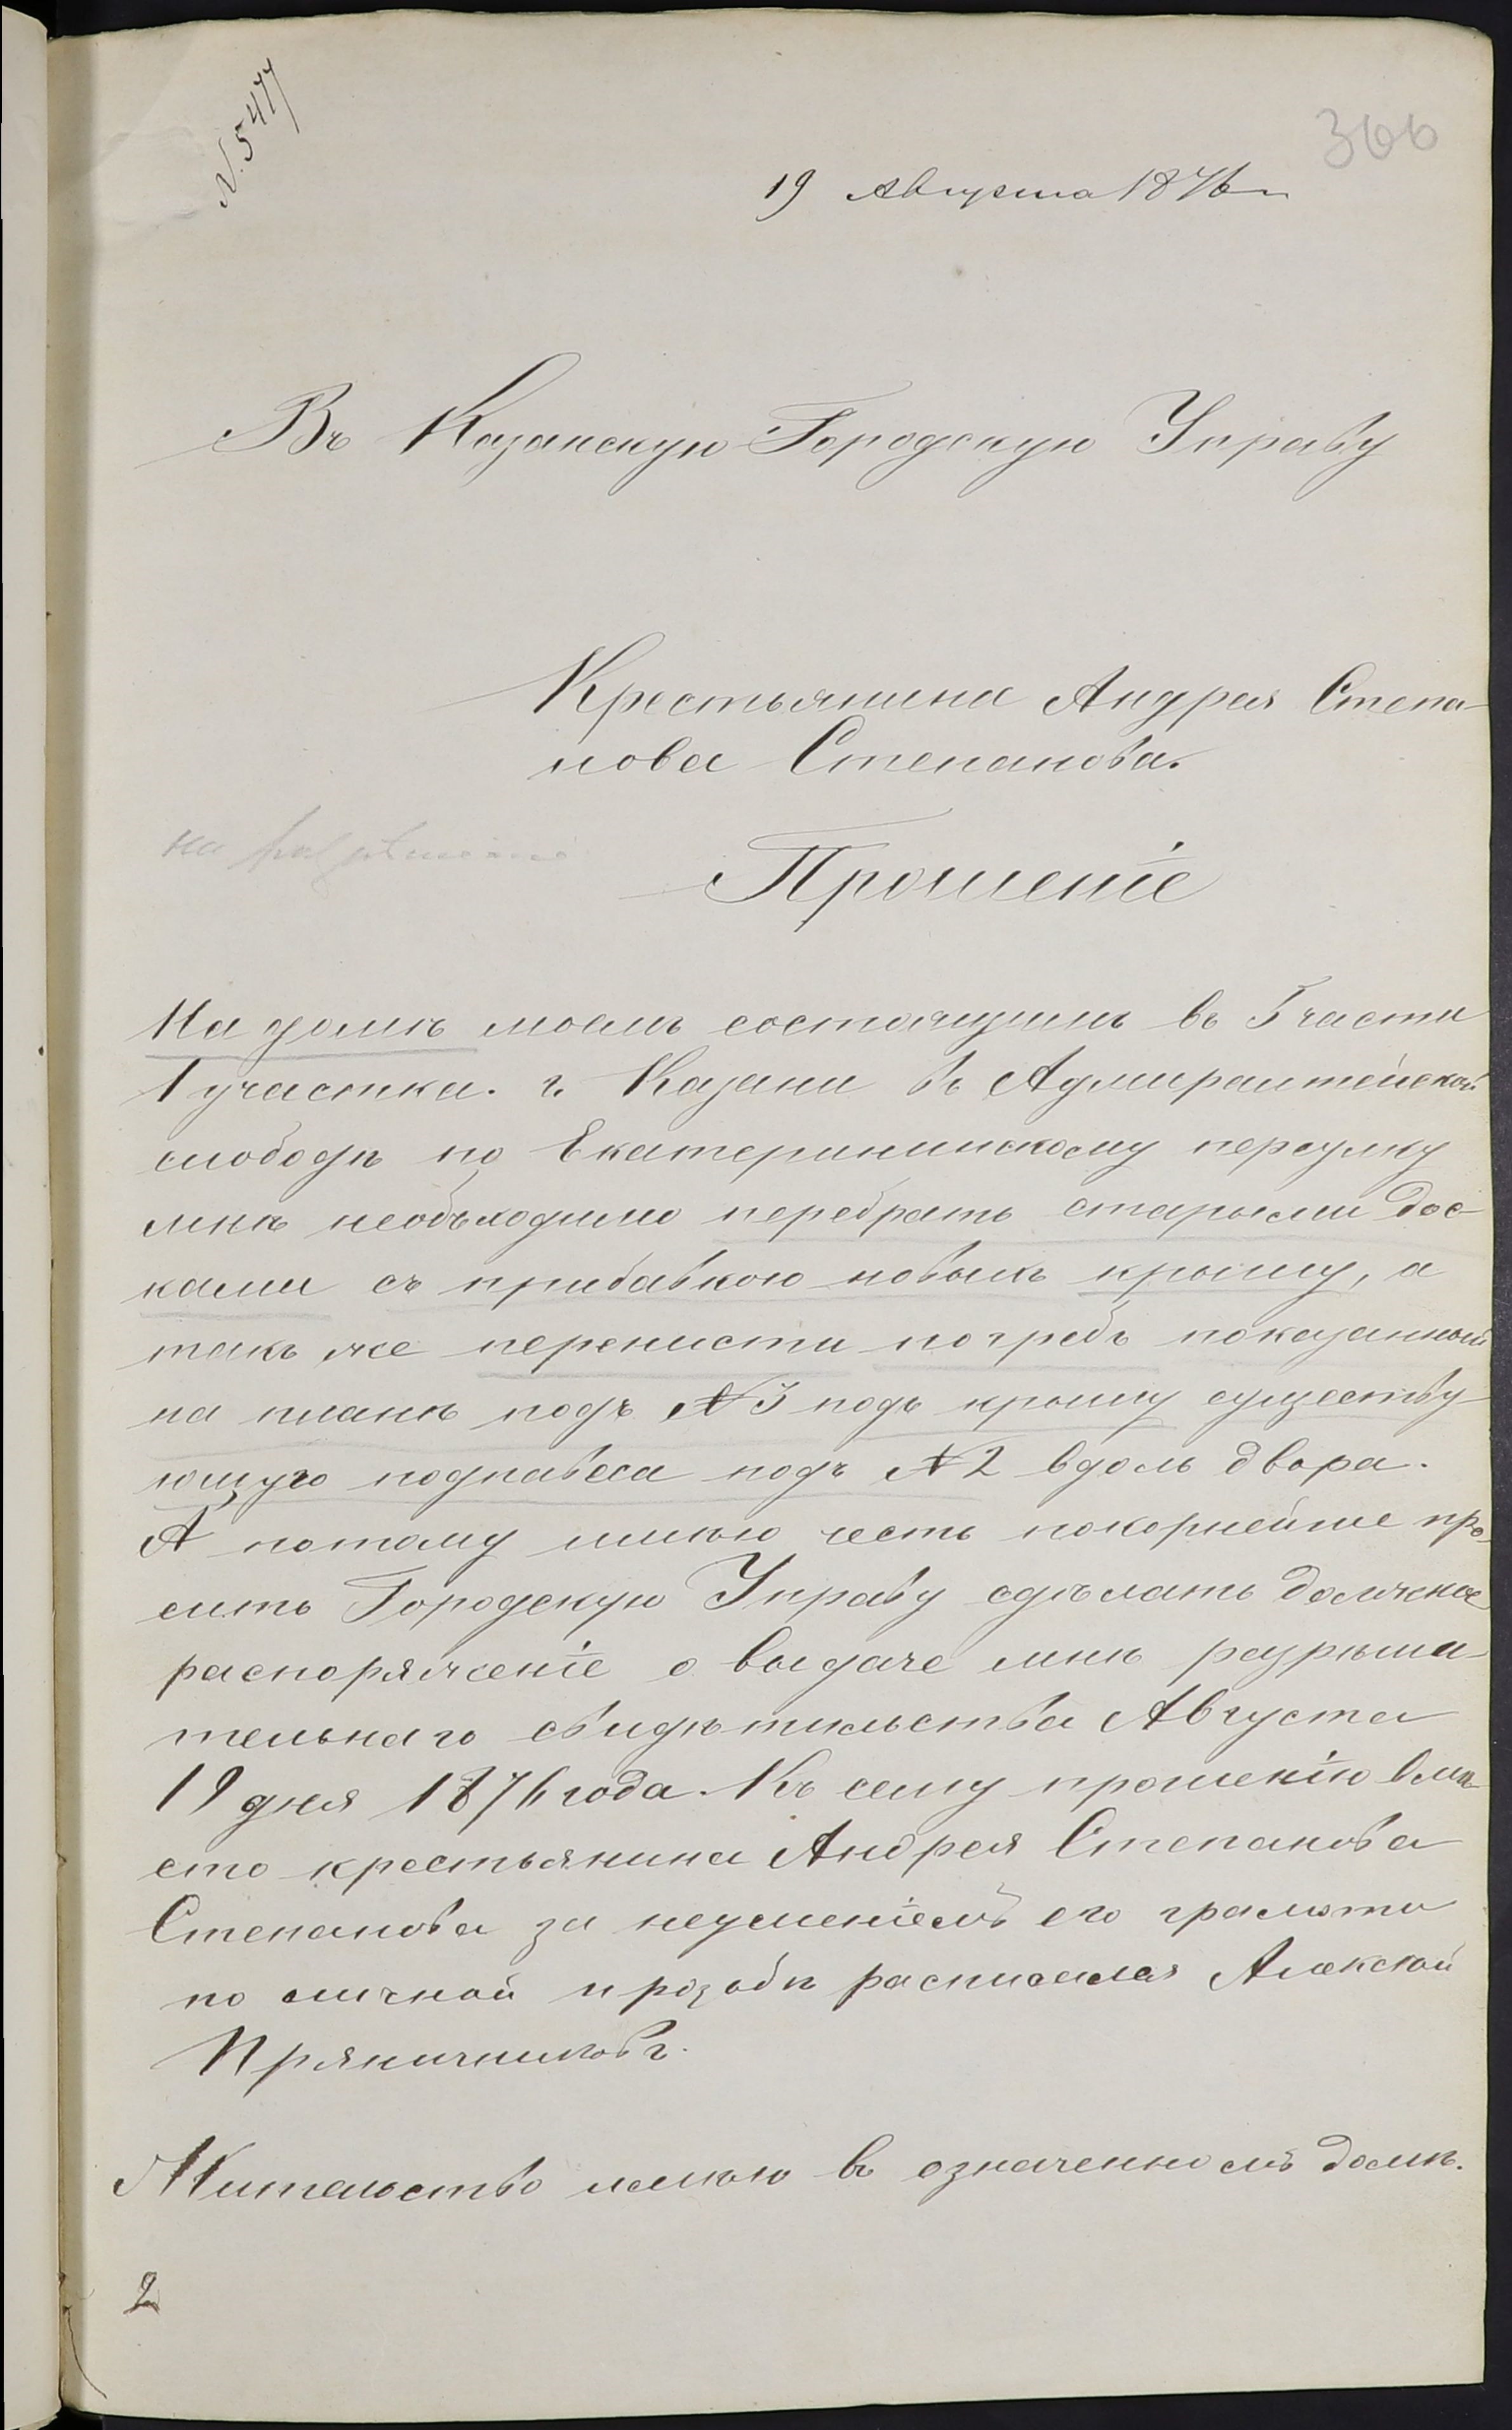 N. 5477
366
19 Августа 1876 г.
Въ Казанскую Городскую Управу
Крестьянина Андрея Степа-
нова Степанова.
на разрѣшеніе
Прошеніе
На домѣ моемъ состоящимъ въ 5 части
1 участка. г. Казани въ Адмиралтейской
слободѣ по Екатерининскому переулку
мнѣ необъходимо перебрать старыми дос-
ками съ прибавкою новыхъ крышу, а
такъ же перенисти погребъ показанный
на планѣ подъ №3 подъ крышу существу-
ющую поднавеса подъ №2 вдоль двора.
А потому имѣю честь покорнейше про-
сить Городскую Управу сдѣлать должное
распоряженіе о выдаче мнѣ разрѣша-
тельнаго свидѣтельства Августа
19 дня 1876 года. Къ сему прошенію вмѣ-
сто крестьянина Андрея Степанова
Степанова за неуменіемъ его грамоти
по личной прозобѣ расписался Алексей
Пряничниковъ.
Жительство имѣю въ означенномъ домѣ.
2